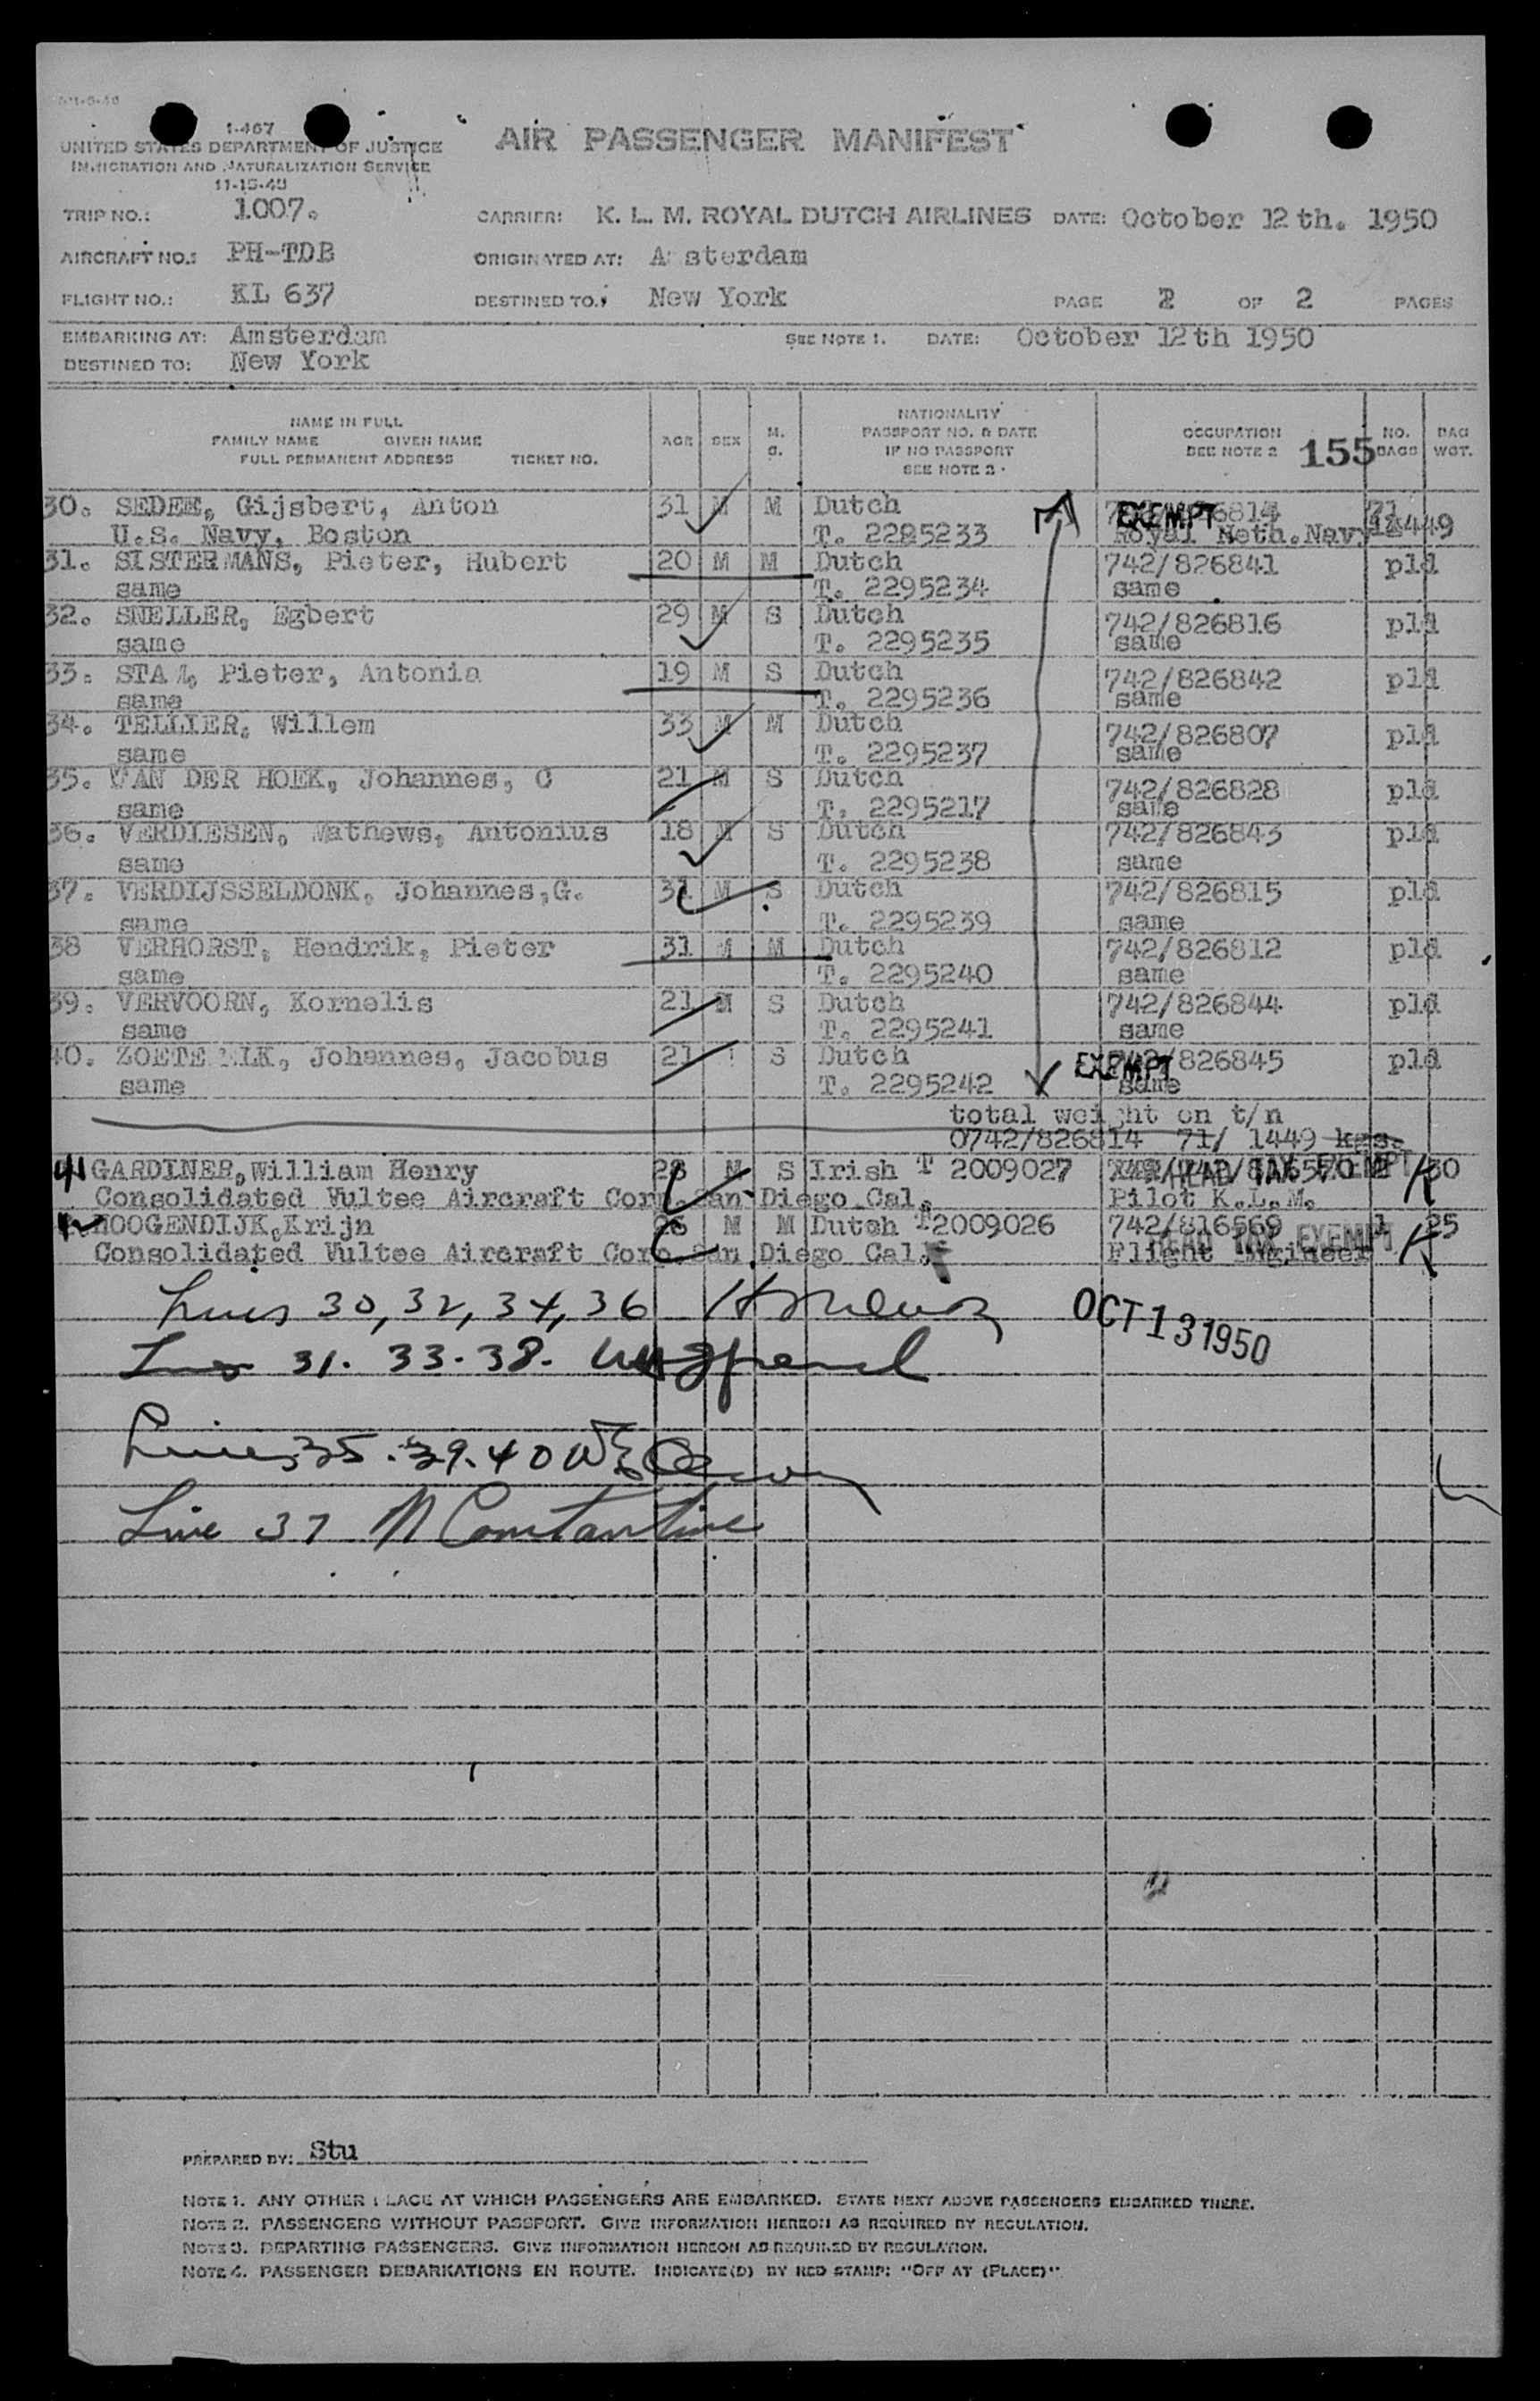 1-467
UNITED STATES DEPARTMENT OF JUSTICE
IMMIGRATION AND NATURALIZATION SERVICE
11-15-49
AIR PASSENGER MANIFEST
TRIP NO.: 1007.
CARRIER: K. L. M. ROYAL DUTCH AIRLINES DATE: October 12th. 1950
AIRCRAFT NO.: PH-TDB
ORIGINATED AT: Amsterdam
FLIGHT NO.: KL 637
DESTINED TO: New York
PAGE 2 OF 2 PAGES
EMBARKING AT: Amsterdam
SEE NOTE 1. DATE: October 12th 1950
DESTINED TO: New York
NAME IN FULL
FAMILY NAME GIVEN NAME
FULL PERMANENT ADDRESS TICKET NO.
AGE SEX M. S.
NATIONALITY
PASSPORT NO. & DATE
IF NO PASSPORT
SEE NOTE 2
OCCUPATION
SEE NOTE 2 155
NO. BAGS BAG WGT.
30. SEDEE, Gijsbert, Anton 31 M M Dutch EXEMPT 71
U.S. Navy, Boston T. 2285233 Royal Neth.Navy 1449
31. SISTERMANS, Pieter, Hubert 20 M M Dutch 742/826841 pld
same T. 2295234 same
32. SNELLER, Egbert 29 M S Dutch 742/826816 pld
same T. 2295235 same
33. Pieter, Antonia 19 M S Dutch 742/826842 pld
same T. 2295236 same
34. TELLIER, Willem 33 M M Dutch 742/826807 pld
same T. 2295237 same
35. VAN DER HOEK, Johannes, C 21 M S Dutch 742/826828 pld
same T. 2295217 same
36. VERDIESEN, Mathews, Antonius 18 M S Dutch 742/826843 pld
same T. 2295238 same
37. VERDIJSSELDONK, Johannes,G. 31 M S Dutch 742/826815 pld
same T. 2295239 same
38 VERHORST, Hendrik, Pieter 31 M M Dutch 742/826812 pld
same T. 2295240 same
39. VERVOORN, Kornelis 21 M S Dutch 742/826844 pld
same T. 2295241 same
40. ZOETEMELK, Johannes, Jacobus 21 S Dutch EXEMPT 742/826845 pld
same T. 2295242 same
total weight on t/n
0742/826814 71/ 1449 kgs.
41 GARDINER,William Henry 28 M S Irish T 2009027 HEAD TAX EXEMPT 2 30
Consolidated Vultee Aircraft Corp.San Diego Cal. Pilot K.L.M.
HOOGENDIJK,Krijn 26 M M Dutch T 2009026 742/816569 1 25
Consolidated Vultee Aircraft Corp San Diego Cal. Flight Engineer HEAD TAX EXEMPT
Lines 30, 32, 34, 36
OCT 13 1950
31. 33. 38.
Lines 35. 39. 40
Line 37 N Constantine
PREPARED BY: Stu
NOTE 1. ANY OTHER PLACE AT WHICH PASSENGERS ARE EMBARKED. STATE NEXT ABOVE PASSENGERS EMBARKED THERE.
NOTE 2. PASSENGERS WITHOUT PASSPORT. GIVE INFORMATION HEREON AS REQUIRED BY REGULATION.
NOTE 3. DEPARTING PASSENGERS. GIVE INFORMATION HEREON AS REQUIRED BY REGULATION.
NOTE 4. PASSENGER DEBARKATIONS EN ROUTE. INDICATE(D) BY RED STAMP: "OFF AT (PLACE)"